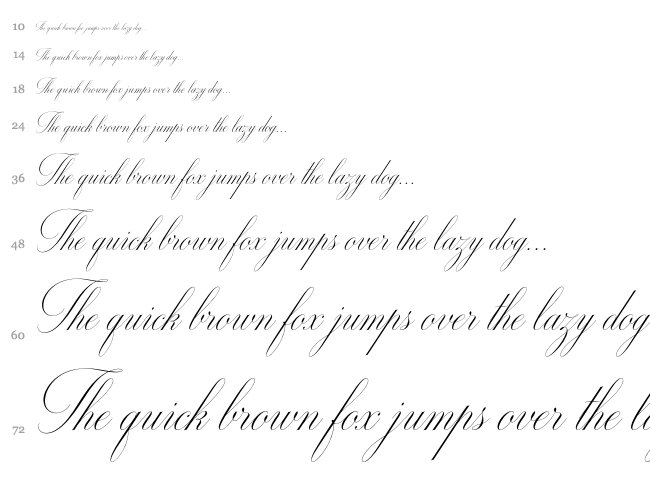 10 The quick brown fox jumps over the lazy dog...
14 The quick brown fox jumps over the lazy dog...
18 The quick brown fox jumps over the lazy dog...
24 The quick brown fox jumps over the lazy dog...
36 The quick brown fox jumps over the lazy dog...
48 The quick brown fox jumps over the lazy dog...
60 The quick brown fox jumps over the lazy dog
72 The quick brown fox jumps over the la